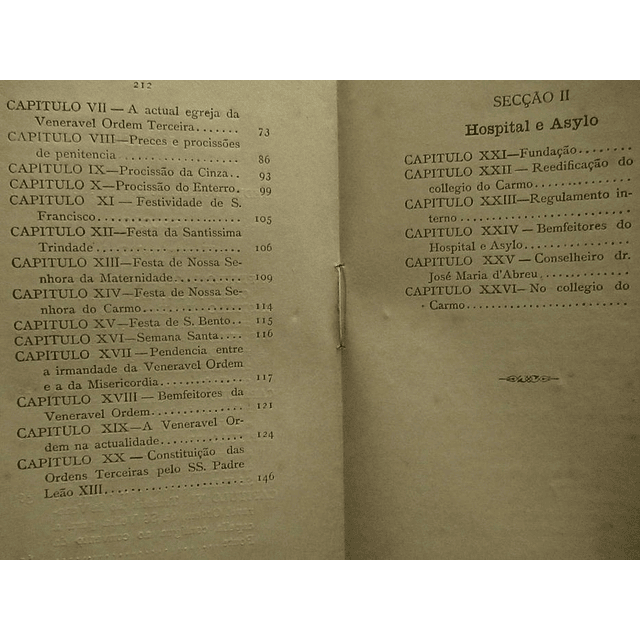 212
CAPITULO VII — A actual egreja da
Veneravel Ordem Terceira....... 73
CAPITULO VIII—Preces e procissões
de penitencia ................ 86
CAPITULO IX—Procissão da Cinza.. 93
CAPITULO X—Procissão do Enterro. 99
CAPITULO XI — Festividade de S.
Francisco..................... 105
CAPITULO XII—Festa da Santissima
Trindade...................... 106
CAPITULO XIII—Festa de Nossa Se-
nhora da Maternidade.......... 109
CAPITULO XIV—Festa de Nossa Se-
nhora do Carmo................ 114
CAPITULO XV—Festa de S. Bento.. 115
CAPITULO XVI—Semana Santa.... 116
CAPITULO XVII—Pendencia entre
a irmandade da Veneravel Ordem
e a da Misericordia............ 117
CAPITULO XVIII — Bemfeitores da
Veneravel Ordem.............. 121
CAPITULO XIX—A Veneravel Or-
dem na actualidade............ 124
CAPITULO XX — Constituição das
Ordens Terceiras pelo SS. Padre
Leão XIII..................... 146
SECÇÃO II
Hospital e Asylo
CAPITULO XXI—Fundação........
CAPITULO XXII — Reedificação do
collegio do Carmo..............
CAPITULO XXIII—Regulamento in-
terno .........................
CAPITULO XXIV — Bemfeitores do
Hospital e Asylo................
CAPITULO XXV — Conselheiro dr.
José Maria d'Abreu.............
CAPITULO XXVI—No collegio do
Carmo........................